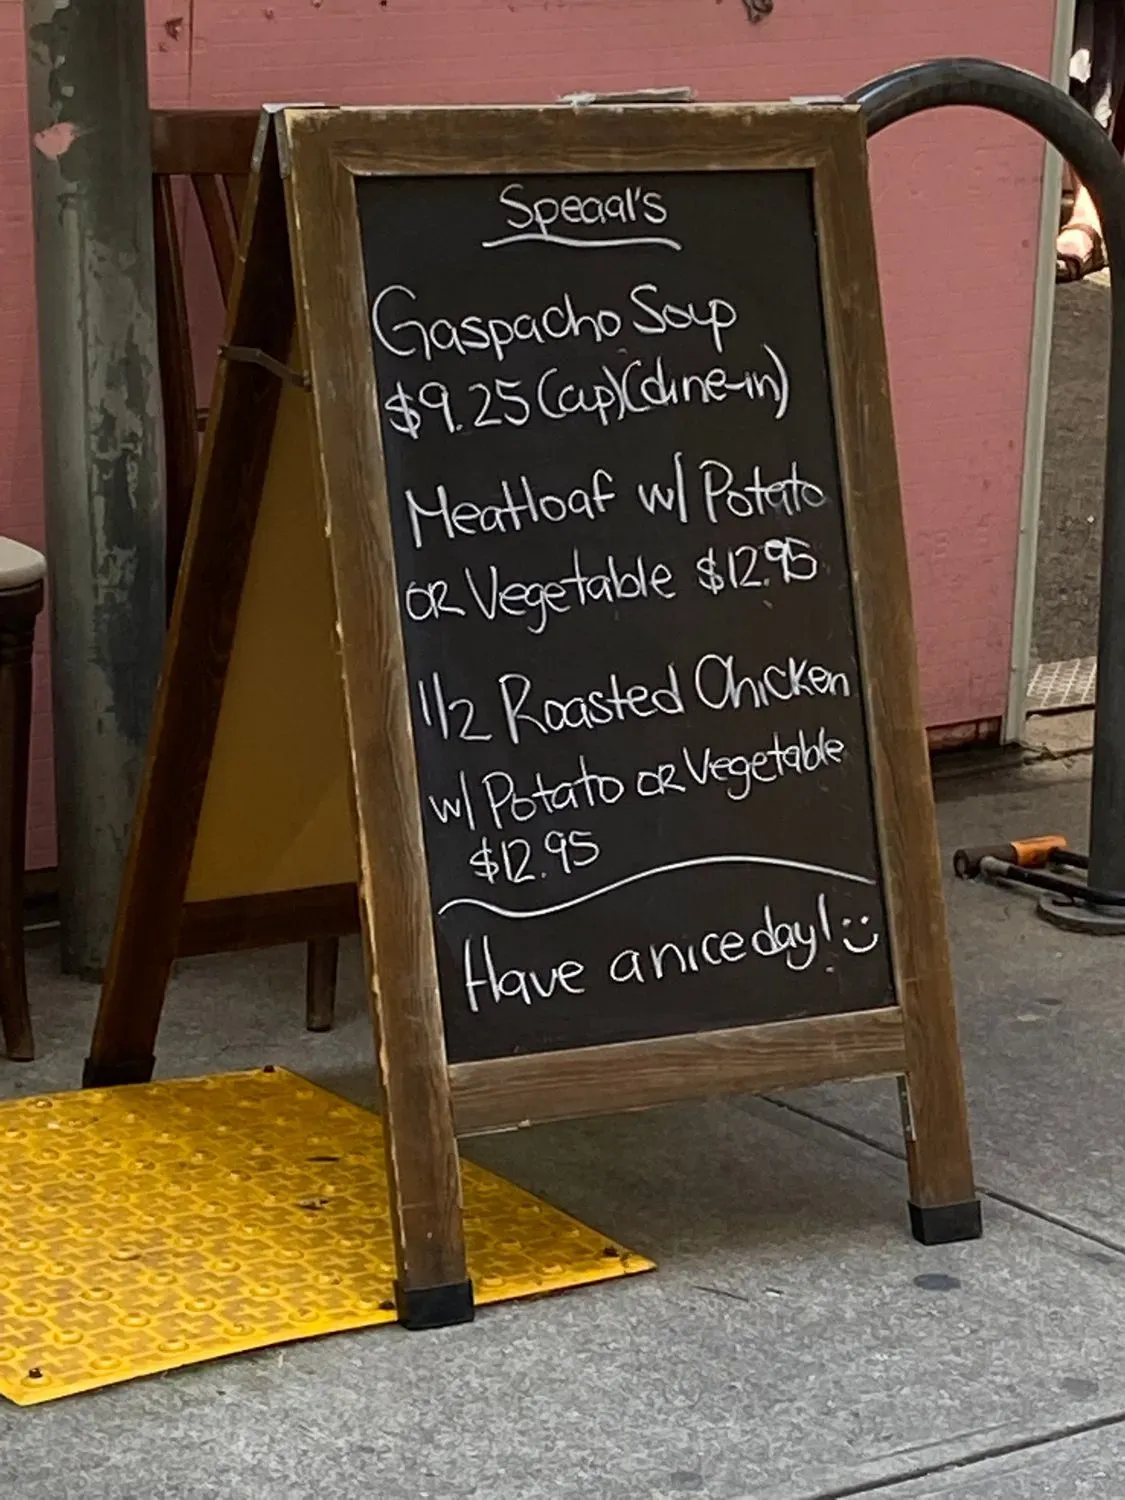 Special's
Gaspacho Soup
$9.25 (cup)(dine-in)
Meatloaf w/ Potato
OR Vegetable $12.95
1/2 Roasted Chicken
w/ Potato OR Vegetable
$12.95
Have a nice day! :)